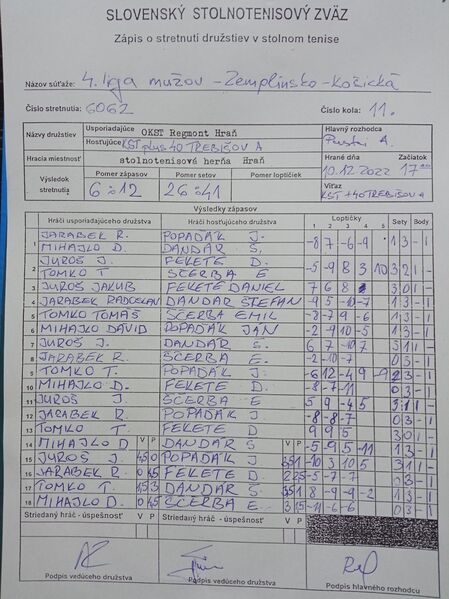 SLOVENSKÝ STOLNOTENISOVÝ ZVÄZ
Zápis o stretnutí družstiev v stolnom tenise
Názov súťaže: 4. liga mužov - Zemplínsko - košická
Číslo stretnutia: 6062 Číslo kola: 11.
Názvy družstiev Usporiadajúce OKST Regmont Hraň Hlavný rozhodca
Hosťujúce KST plus 40 TREBIŠOV A
Hracia miestnosť stolnotenisová herňa Hraň Hrané dňa Začiatok
Výsledok stretnutia Pomer zápasov Pomer setov Pomer loptičiek 10.12.2022 17
6:12 26:41 Víťaz KST +40 TREBIŠOV A
Výsledky zápasov
Hráči usporiadajúceho družstva Hráči hosťujúceho družstva Loptičky Sety Body
1 2 3 4 5
1 JARABEK R. POPAĎÁK J. -8 7 -6 -9 1 3 - 1
MIHAJLO D. DANDÁR Š.
2 JUROŠ J. FEKETE D. -5 -9 8 3 10 3 2 1 -
TOMKO T SČERBA E
3 JUROŠ JAKUB FEKETE DANIEL 7 6 8 3 0 1 -
4 JARABEK RADOSLAV DANDÁR ŠTEFAN -9 5 -10 -7 1 3 - 1
5 TOMKO TOMÁŠ SČERBA EMIL -8 -7 9 -6 1 3 - 1
6 MIHAJLO DAVID POPAĎÁK JÁN -2 -9 10 -5 1 3 - 1
7 JUROŠ J. DANDÁR Š. 6 7 -10 7 3 1 1 -
8 JARABEK R. SČERBA E. -2 -10 -7 0 3 - 1
9 TOMKO T. POPAĎÁK J. -6 12 -4 9 -9 2 3 - 1
10 MIHAJLO D. FEKETE D. -8 -7 -11 0 3 - 1
11 JUROŠ J SČERBA E 5 9 -4 5 3 1 1 -
12 JARABEK R. POPAĎÁK J. -8 -8 -7 0 3 - 1
13 TOMKO T. FEKETE D 9 9 5 3 0 1 -
14 MIHAJLO D V P DANDÁR Š V P -5 -9 5 -11 1 3 - 1
15 JUROŠ J. 4,5 0 POPAĎÁK J. 3,5 1 -10 3 10 5 3 1 1 -
16 JARABEK R. 0 4,5 FEKETE D. 2 2,5 -5 -7 -7 0 3 - 1
17 TOMKO T. 1,5 3 DANDÁR Š 3,5 1 8 -9 -9 -2 1 3 - 1
18 MIHAJLO D. 0 4,5 SČERBA E. 3 1,5 -11 -6 -6 0 3 - 1
Striedaný hráč - úspešnosť V P Striedaný hráč - úspešnosť V P
Podpis vedúceho družstva Podpis vedúceho družstva Podpis hlavného rozhodcu